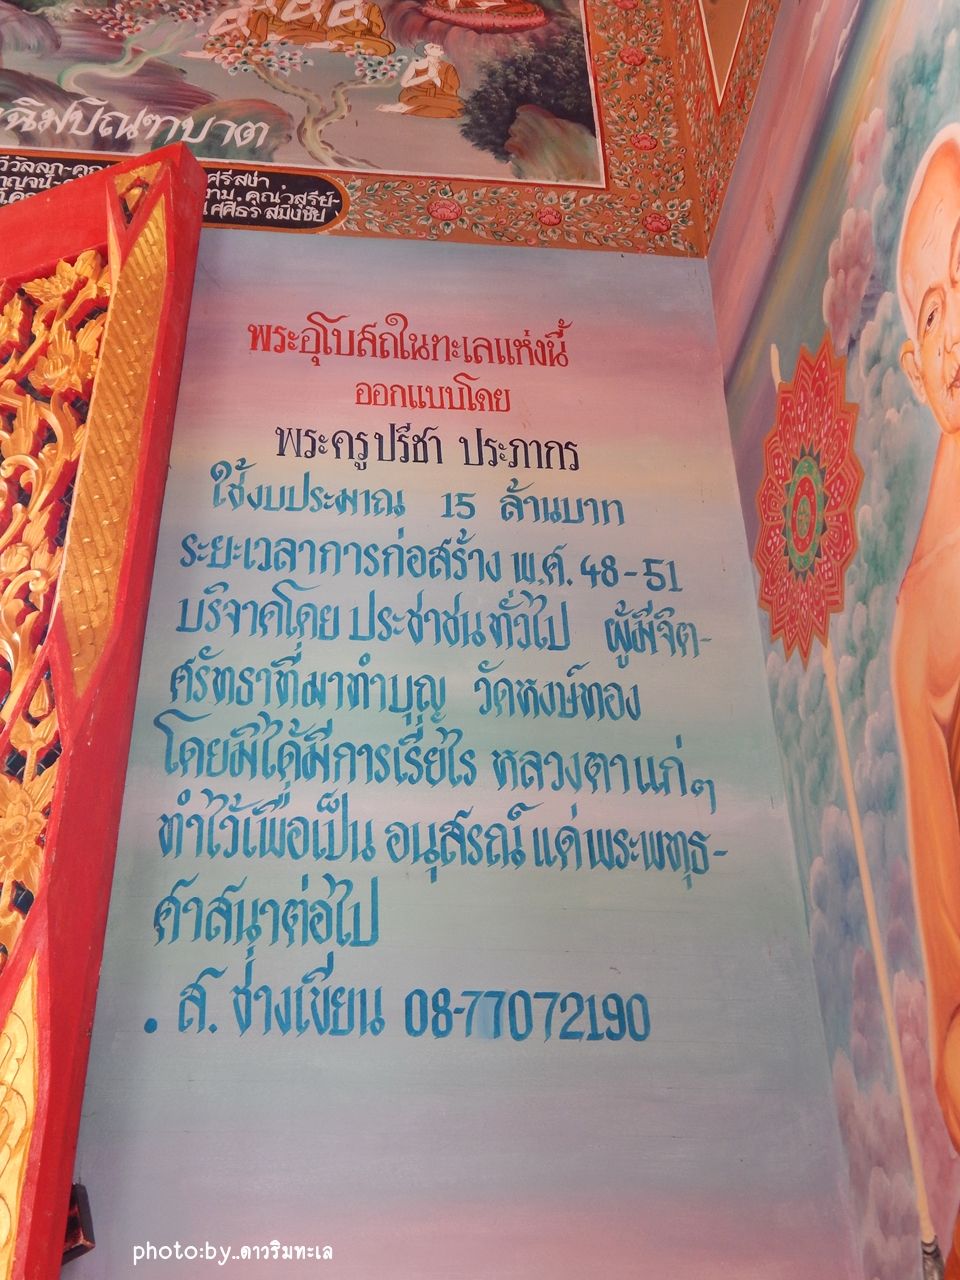 ฉิมบิณฑบาต
ศรีสชา
สุรีย์-
พระอุโบสถในทะเลแห่งนี้
ออกแบบโดย
พระครูปรีชา ประภากร
ใช้งบประมาณ 15 ล้านบาท
ระยะเวลาการก่อสร้าง พ.ศ. 48-51
บริจาคโดย ประชาชนทั่วไป ผู้มีจิต-
ศรัทธาที่มาทำบุญ วัดหงษ์ทอง
โดยมิได้มีการเรี่ยไร หลวงตาแก่ๆ
ทำไว้เพื่อเป็น อนุสรณ์ แด่พระพุทธ-
ศาสนาต่อไป
. ส. ช่างเขียน 08-77072190
photo:by..ดาวริมทะเล